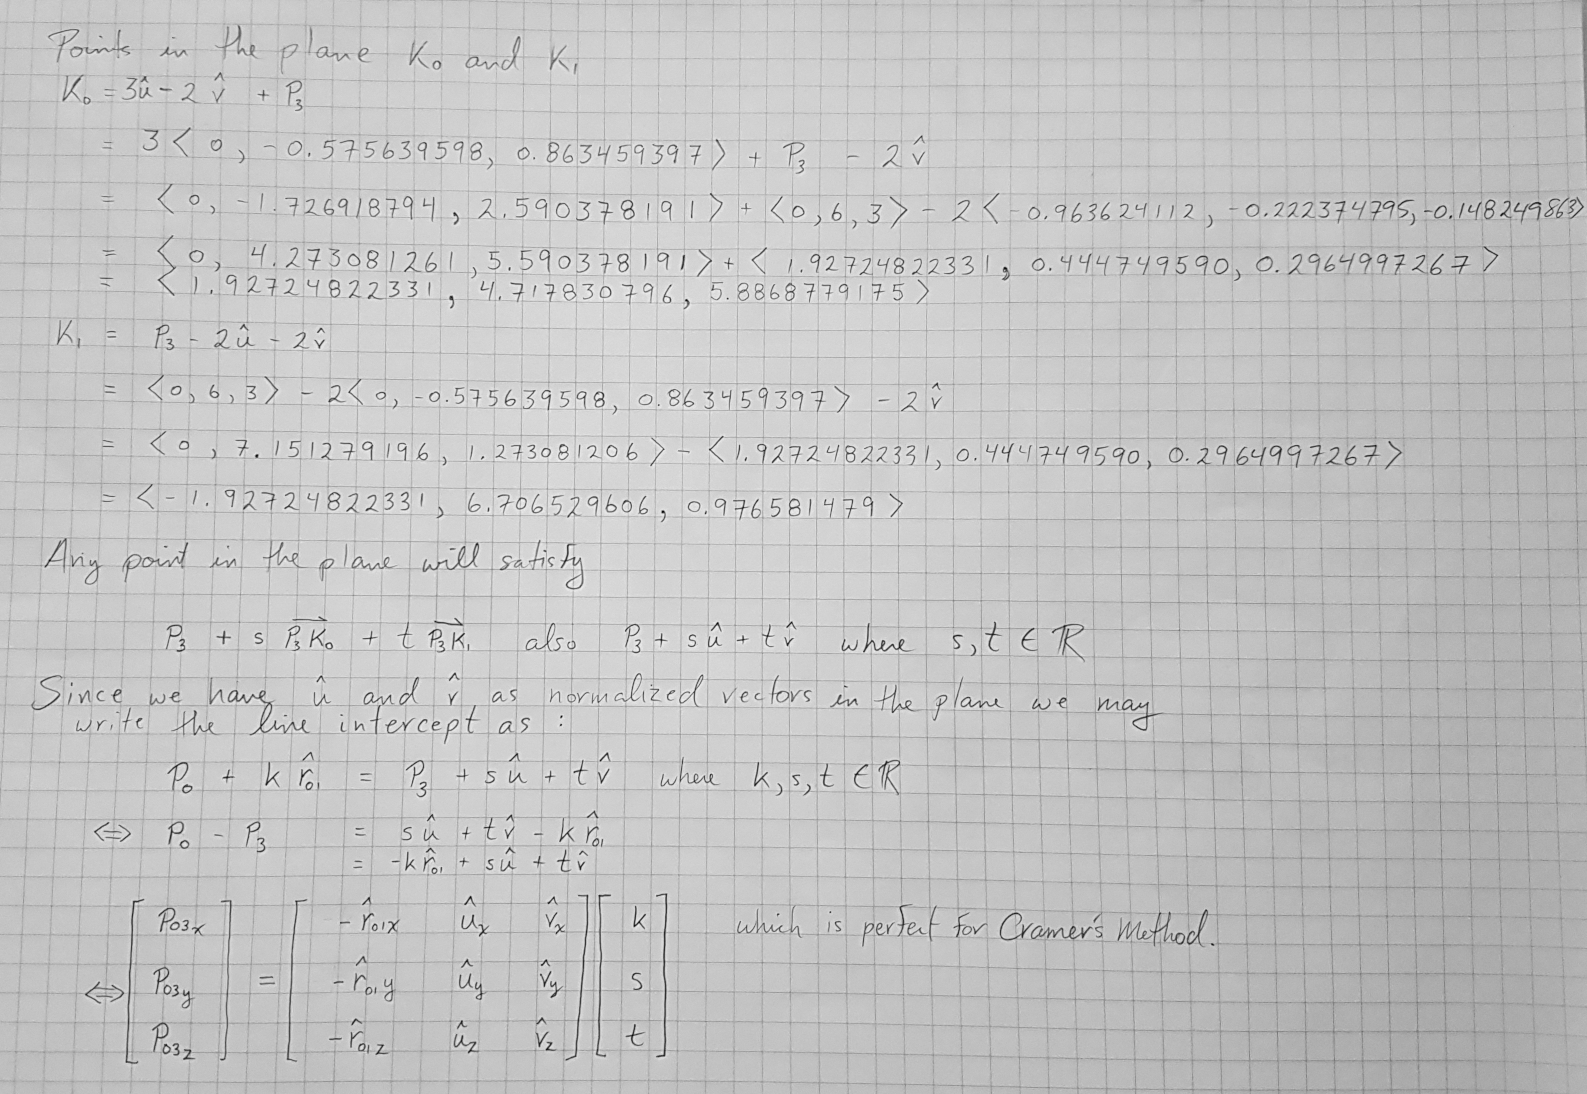 Points in the plane K₀ and K₁
K₀ = 3û - 2 v̂ + P₃
= 3 < 0, -0.575639598, 0.863459397 > + P₃ - 2 v̂
= < 0, -1.726918794, 2.590378191 > + < 0, 6, 3 > - 2 < -0.963624112, -0.222374795, -0.148249863 >
= < 0, 4.273081261, 5.590378191 > + < 1.92724822331, 0.444749590, 0.2964997267 >
= < 1.92724822331, 4.717830796, 5.8868779175 >
K₁ = P₃ - 2û - 2v̂
= < 0, 6, 3 > - 2 < 0, -0.575639598, 0.863459397 > - 2 v̂
= < 0, 7.151279196, 1.273081206 > - < 1.92724822331, 0.444749590, 0.2964997267 >
= < -1.92724822331, 6.706529606, 0.976581479 >
Any point in the plane will satisfy
P₃ + s P₃K₀⃗ + t P₃K₁⃗ also P₃ + s û + t v̂ where s, t ∈ ℝ
Since we have û and v̂ as normalized vectors in the plane we may
write the line intercept as :
P₀ + k r̂₀₁ = P₃ + s û + t v̂ where k, s, t ∈ ℝ
⇔ P₀ - P₃ = s û + t v̂ - k r̂₀₁
= -k r̂₀₁ + s û + t v̂
[P₀₃ₓ] [-r̂₀₁ₓ ûₓ v̂ₓ] [k] which is perfect for Cramer's Method.
⇔ [P₀₃y] = [-r̂₀₁y ûy v̂y] [s]
[P₀₃z] [-r̂₀₁z ûz v̂z] [t]